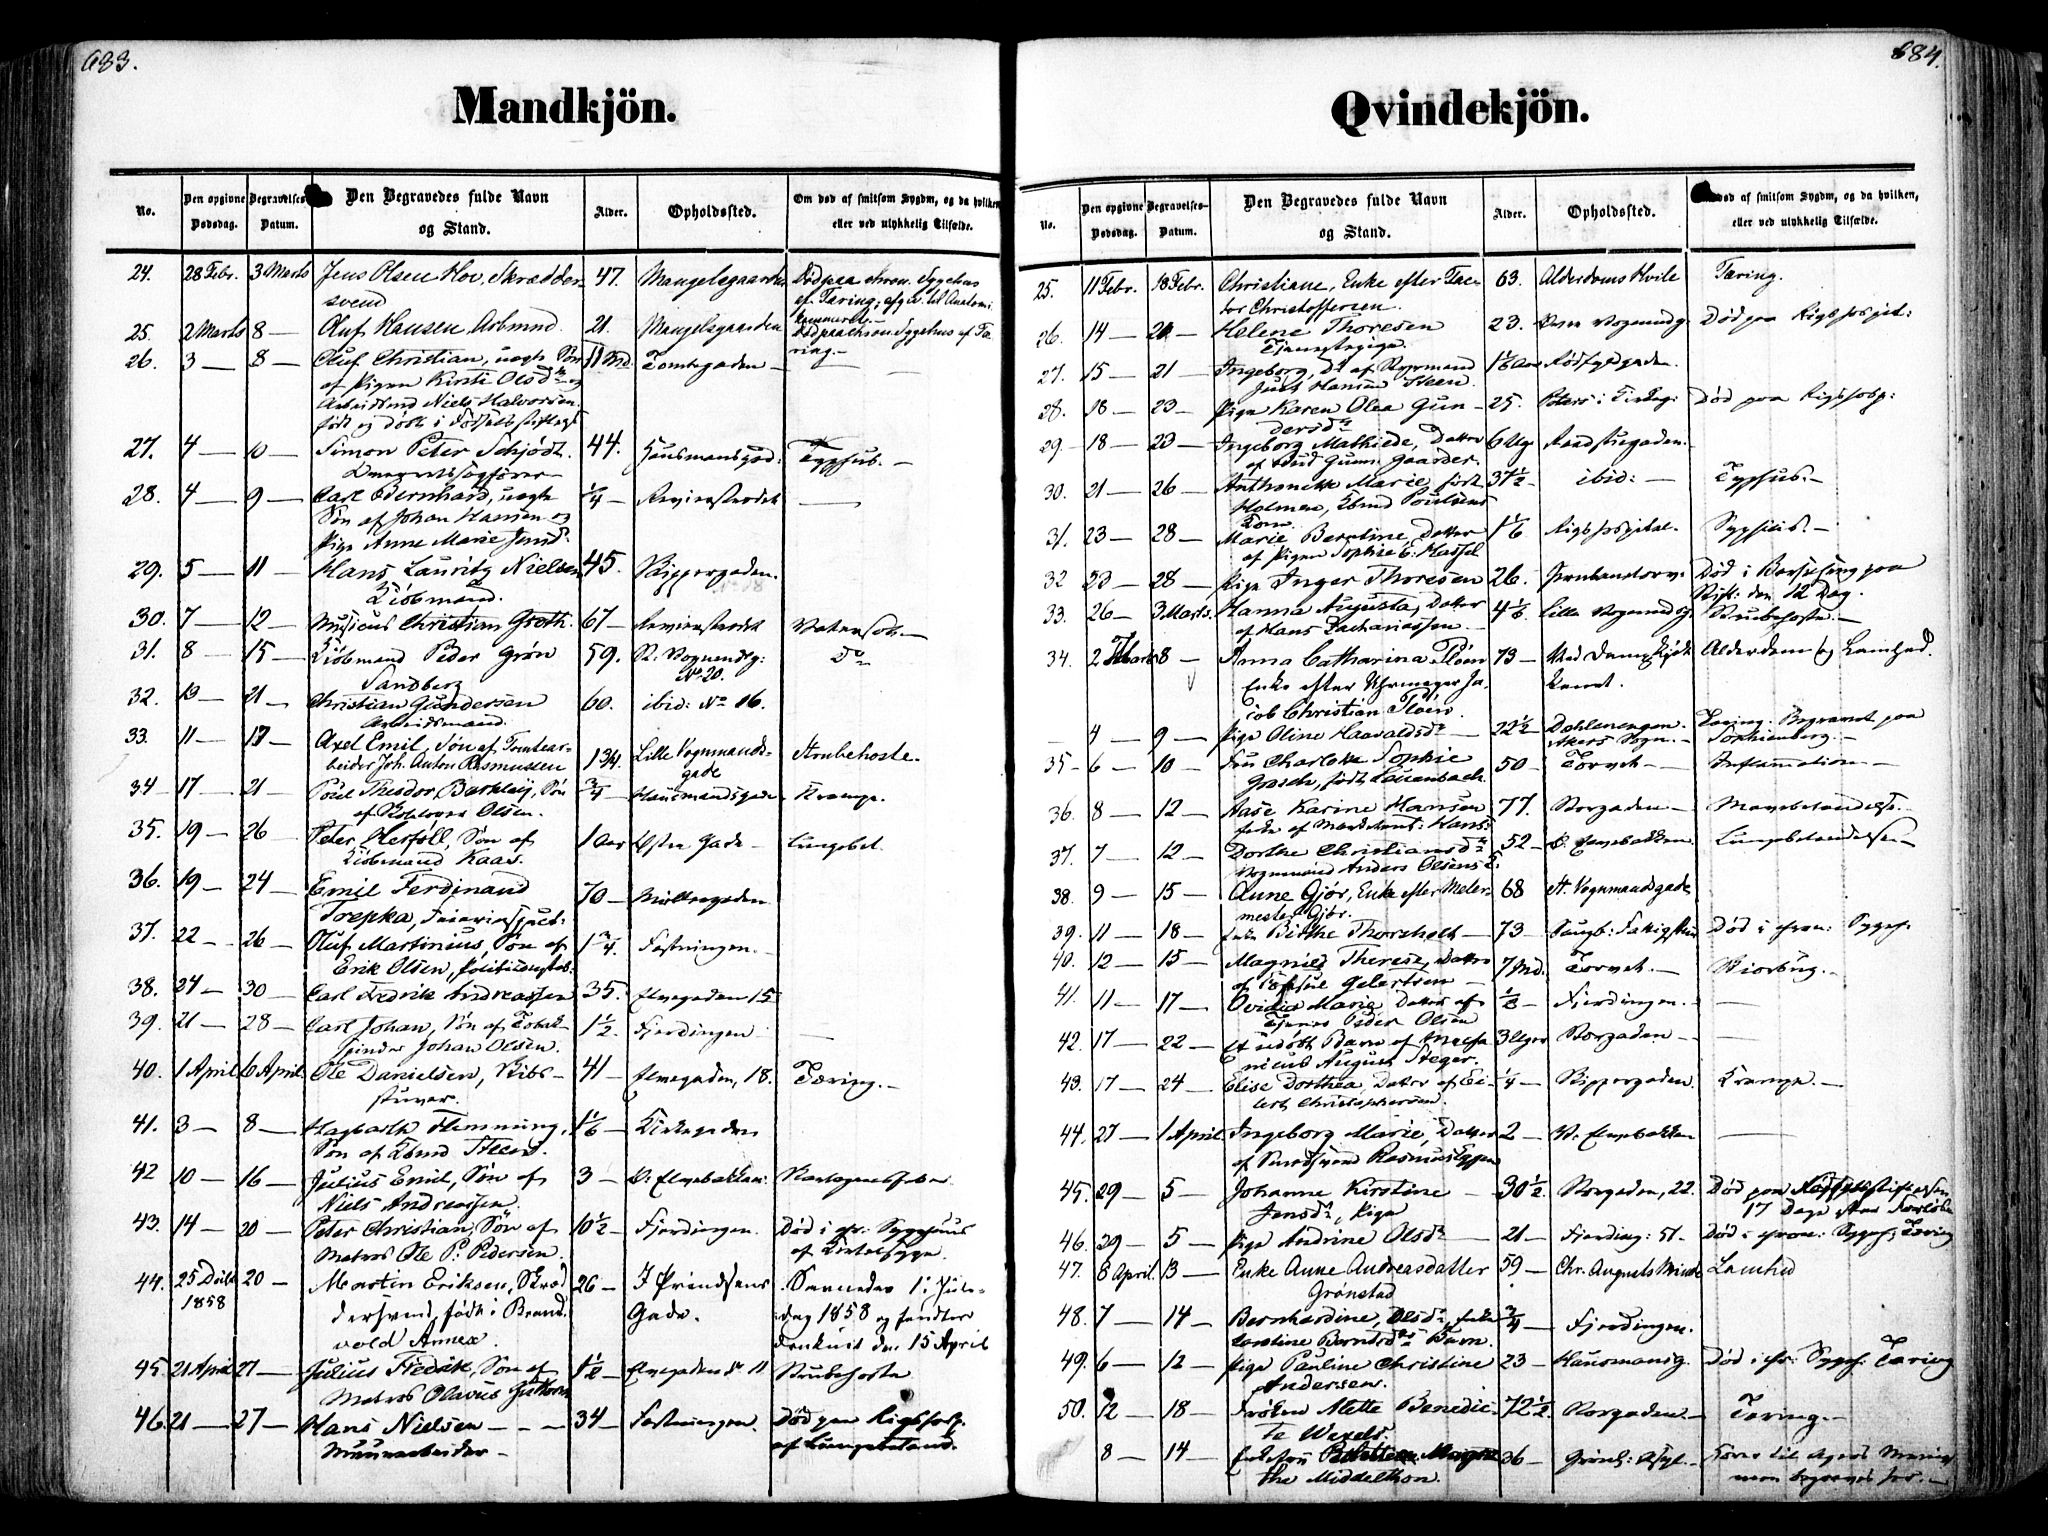 683.
Mandkjön.
No.
Den opgivne Dødsdag.
Begravelses Datum.
Den Begravedes fulde Navn og Stand.
Alder.
Opholdssted.
Om død af smitsom Sygdm, og da hvilken, eller ved ulykkelig Tilfælde.
24. 28 Febr. 3 Marts Jens Olsen Hov, Skrædder- 47. Mangelsgaarden Død paa chron. Sygehus
svend af Tæring; til Anatomi
25. 2 Marts 8 — Oluf Hansen Arbmnd. 21. Mangelsgaarden Død paa chron Sygehus af Tæ-
26. 3 — 8 — Oluf Christian, uægte Søn 11 Md. Tomtegaden — ring.—
af Pigen Kirsti Olsdr og
Arbeidsmd Niels Halvorsen.
født og døbt i Fødselsstiftels
27. 4 — 10 — Simon Peter Schjødt. 44. Hausmansgad: Typhus. —
28. 4 — 9 — Carl Bernhard, uægte 1/4 — Revierstrædet —
Søn af Johan Hansen og
Pige Anne Marie Jensd.
29. 5 — 11 — Hans Lauritz Nielsen 45. Pippergaden.
Kiöbmand.
30. 7 — 12 — Musicus Christian Groth. 67 — Revierstrædet Vatersot.—
31. 8 — 15 — Kiöbmand Peder Grøn 59. St. Vognmdsg: Do
Sandberg No 20.
32. 19 — 21 — Christian Gundersen 60. ibid: No 16.
Arbeidsmand.
33. 11 — 17 — Axel Emil, Søn af Tomtear- 1 3/4. Lille Vognmands- Strubehoste.
beider Joh. Anton Rasmussen gade
34 — 17 — 21 — Poul Theodor Barkley, Søn 3/4 — Hausmandsgade Krampe.
af Olsen.
35. 19 — 26 — Peter Søn af 1 Aar Østre Gade — Lungebet.
Kiöbmand Kaas.
36. 19 — 24 — Emil Ferdinand 70 — Møllergaden
Trepka,
37. 22 — 26 — Oluf Martinius, Søn af 1 3/4. Fæstningen. —
Erik Olsen, Politikonstab:
38. 24 — 30 — Carl Fredrik Andreassen 35. Elvegaden 15
39. 21 — 28 — Carl Johan, Søn af Tobak- 1 1/2. Fjerdingen —
spinder Johan Olsen.
40. 1 April 6 April Ole Danielsen, 41 — Elvegaden, 18. Tæring. —
41. 3 — 8 — Hagbarth Flemming, 1 1/6 — Kirkegaden
Søn af Kbmd Steen.
42 10 — 16 — Julius Emil, Søn af 3 — Ø. Elvebakken:
Niels Andreassen.
43. 14 — 20 — Peter Christian, Søn af 10 1/2 — Fjerdingen. Død i chr. Sygehuus
Matros Ole P. Pedersen. af Kirtelsyge.
44. 25 Decbr 20 — Martin Eriksen, Skræd 26 — I Prindsens Savnedes 1. Jule-
1858 dersvend, født i Brand. Gade. dag 1858 og fandtes
vold Annex. druknet den 15 April
45. 21 April 27 — Julius Fredrik, Søn af 1 1/2 — Elvegaden No 11 Strubehoste
Matros Olavus
46. 21 — 27 — Hans Nielsen — - - 34 — Fæstningen. Død paa Rigshosp.
Muurarbeider — af Lungebetænd.
684.
Qvindekjön.
No.
Den opgivne Dødsdag.
Begravelses- Datum.
Den Begravedes fulde Navn og Stand.
Alder.
Opholdssted.
død af smitsom Sygdm, og da hvilken, eller ved ulykkelig Tilfælde.
25. 11 Febr. 18 Febr. Christiane, Enke efter Fac- 63. Alderdoms Hvile Tæring.
tor Christoffersen.
26. 14 — 20 — Helene Thoresen 23. Vognmdg. Død paa Rigshospit:
Tjenestepige.
27. 15 — 21 — Ingeborg, Dr af Styrmand 1 1/6 Aar Rødfyldgaden.
Just Hansen Steen.
28. 18 — 23 — Pige Karen Olea Gun- 25. Død paa Rigshosp:
dersdr
29 18 — 23 — Ingeborg Mathilde, Datter 6 Ug Raadstuegaden.
af Gaarder.
30. 21 — 26 — Anthonette Marie, født 37 1/2 — ibid: — Typhus.—
Holmen, Kbmd Poulsens
Kone.
31. 23 — 28 — Marie Berntine, Datter 1 1/6 Rigshospitalet. Syphilis.—
af Pigen Sophie C. Hassel
32 23 — 28 — Pige Inger Thoresen 26. Jernbanetorv. Død i Barselseng paa
Stift: den 12 Dag.
33. 26 — 3 Marts. Hanna Augusta, Datter 4 1/6. Lille Vognmdsg Strubehoste.—
af Hans Zachariassen —
34. 2 Marts 8 — Anna Catharina Pløen 73 — Alderdom og Lamhed.
Enke efter Uhrmager Ja.
cob Christian Pløen.
— 4 — 9 — Pige Oline Haavaldsdr 22 1/2 — Dahlenengen. Tæring. Begravet paa
Akers Sogn. — Sophienberg.—
35 — 6 — 10 — Fru Charlotte Sophie 50 — Torvet — Inflammation —
Grosch, født Lauenbach.
36. 8 — 12 — Aase Karine Hansen 77. Storgaden —
37. 7 — 12 — Dorthe Christiansdr 52 — Ø. Elvebakken. Lungebetændelse —
Vognmand Anders Olsens E.
38. 9 — 15 — Anne Gjör, Enke efter Maler- 68 St. Vognmandsgade
mester Gjör.
39. 11 — 18 — Enke Birthe Thorsholt — 73 — Død i chron: Sygeh.
40. 12 — 15 — Magnild Therese, Datter 7 Md. Torvet. —
af Gulertsen —
41. 11 — 17 — Ovidia Marie Datter af 1/8 — Fjerdingen. —
Tjener Peder Olsen
42. 17 — 22 — Et udøbt Barn af Mecha 3 Uger Storgaden — —
nicus August Steger.
43. 17 — 24 — Elise Dorthea, Datter af Ei- 1/4 — Pippergaden. Krampe. —
lert Christophersen.
44. 27 — 1 April Ingeborg Marie, Datter 2 — V. Elvebakken —
af Smedsvend Rasmus
45. 29 — 5 — Johanne Kirstine — 30 1/2. Storgaden, 22. Død paa Fødselsstiftelsen
Jensdr, Pige 17 Dage
46. 29 — 5 — Pige Andrine Olsdr — 21 — Fjerding: 51. Død i chron: Sygeh; Tæring
47. 8 April. 13 — Enke Anne Andreasdatter 59 — Chr. Augusts Minde Lamhed
Grønstad
48. 7 — 14 — Bernhardine, Olsdr, 3/4 — Fjerdingen.
Berntsdrs Barn.
49. 6 — 12 — Pige Pauline Christine 23 — Hausmansg. Død i chr. Sygeh. Tæring
Andersen.
50. 12 — 18 — Frøken Mette Benedic- 72 1/2. Storgaden — Tæring.—
ta Wexels.
8 — 14 — Margre 36 —
the Middelthon.